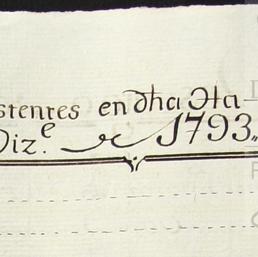 stentes en dha Đta
Diz.e de 1793,,